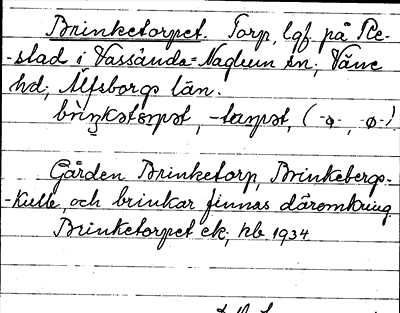 Brinketorpet. Torp, lgf. på Re-
-stad i Vassända=Naglum sn; Väne
hd; Älfsborgs län.
Gården Brinketorp, Brinkebergs-
-kulle, och brinkar finnas däromkring
Brinketorpet ek; hb 1934